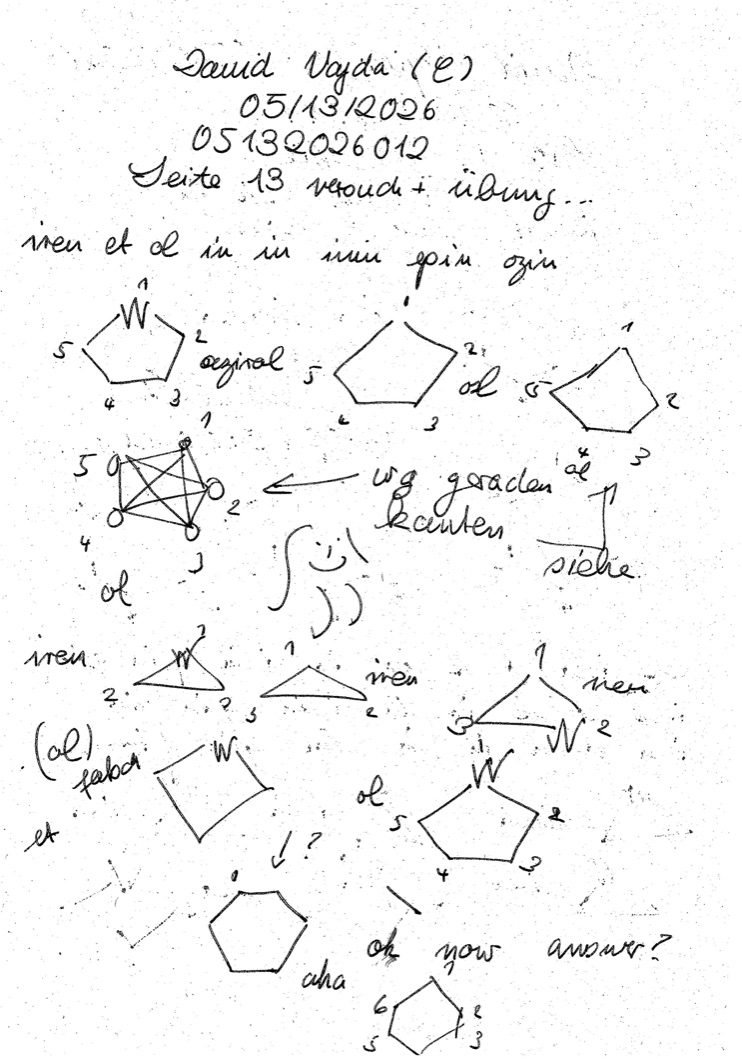 David Vajda (C)
05/13/2026
05132026012
Seite 13 versuch + übung...
iren et ol in in inin epin ozin
1
N
5 2
4 3
aziral
2
5
4 3
ol
1
5 2
4 3
ol
1
5
2
4
3
ol
wg geraden
kanten
siehe
iren
N
2
1
3 2
iren
1
3 N 2
iren
(ol)
falsch
N
et
ol
1
N
5 2
4 3
?
aha
oh now answer?
1
6 2
5 3